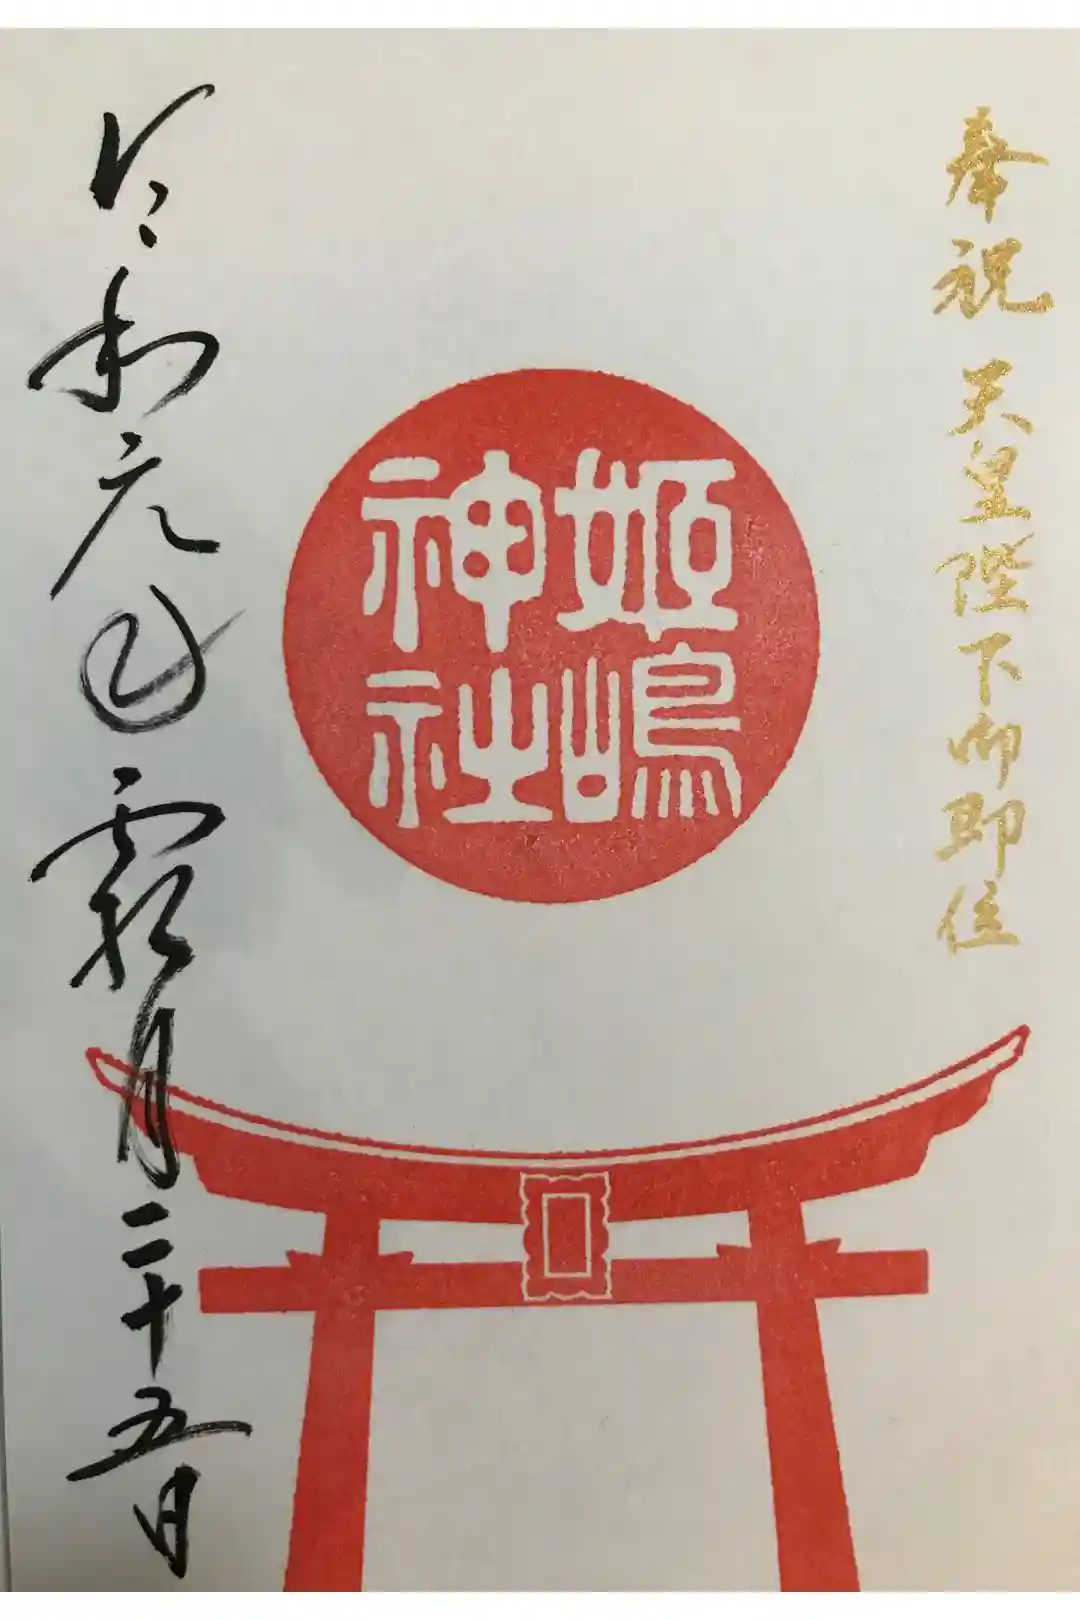 奉祝 天皇陛下御即位
姫嶋
神社
令和元年霜月二十五日